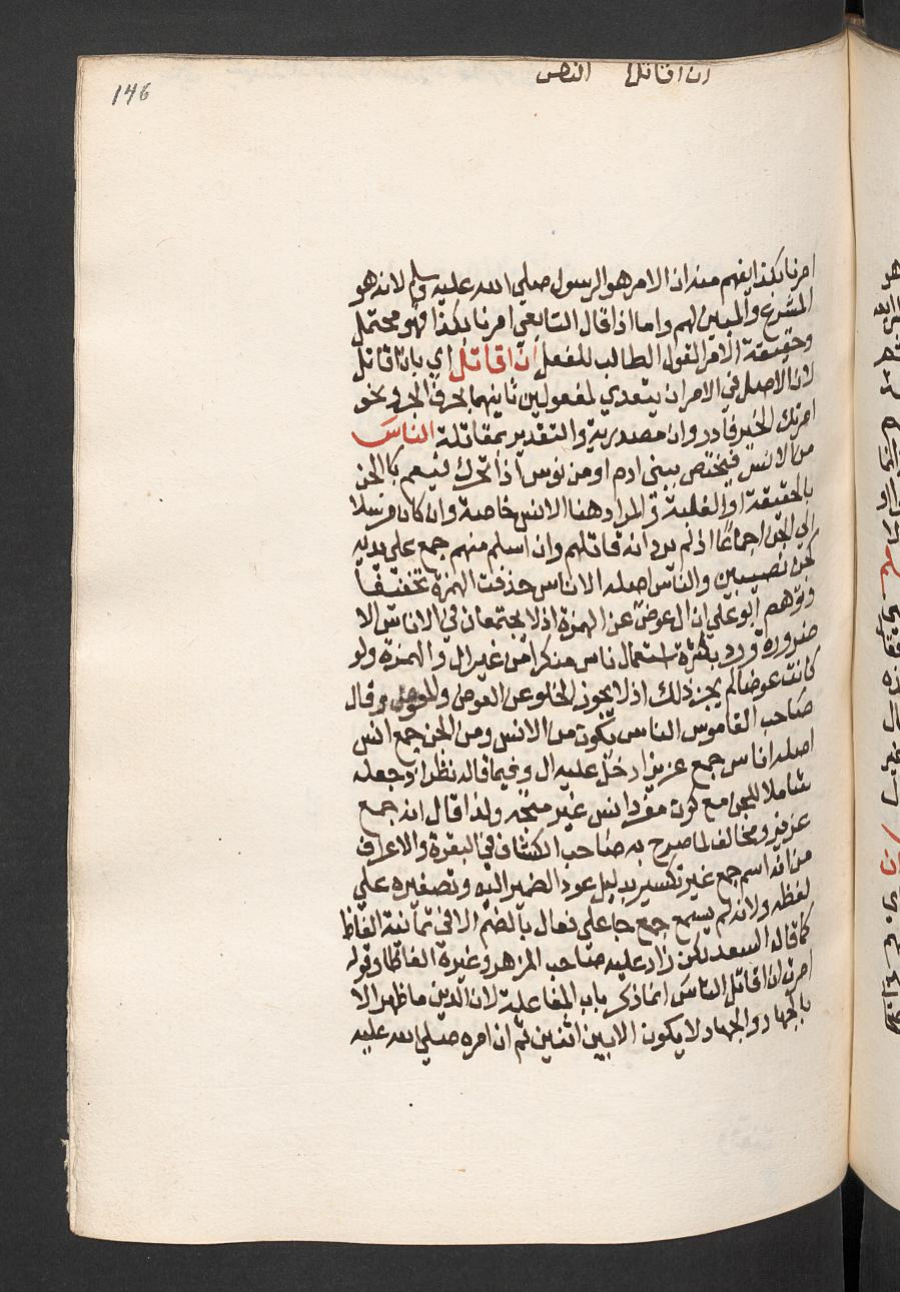 ان اقاتل النص
146
امرنا بكذا يفهم منه ان الامر هو الرسول صلي الله عليه وسلم لانه هو
المشرع والمبين لهم واما اذا قال التابعي امرنا بكذا فهو محتمل
وحقيقة الامر القول الطالب للفعل ان اقاتل اي بان اقاتل
لان الاصل في الامر ان يتعدي لمفعولين ثانيهما بحرف الجر ونحو
امرتك الخير نادر وان مصدرية والتقدير بمقاتلة الناس
من الانس فيختص ببني ادم او من نوس اذا تحرك فيعم كالجن
بالحقيقة او الغلبة والمراد هنا الانس خاصة وان كان مرسلا
الي الجن اجماعا اذ لم يرد انه قاتلهم وان اسلم منهم جمع علي يديه
كجن نصيبين والناس اصله الاناس حذفت الهمزة تخفيفا
وتوهم ابو علي ان ال عوض عن الهمزة اذ لا يجتمعان في الاناس الا
ضرورة ورد بكثرة استعمال ناس منكرا من غير ال والهمزة ولو
كانت عوضا لم يجز ذلك اذ لا يجوز الخلو عن العوض والمعوض وقال
صاحب القاموس الناس يكون من الانس ومن الجن جمع انس
اصله اناس جمع عزيز ادخل عليه ال وفيما قاله نظر اذ جعله
شاملا للجن مع كون مفرد انس غير متجه ولذا قال انه جمع
عزيز ومخالف لما صرح به صاحب الكشاف في البقرة والاعراف
من انه اسم جمع غير تكسير بدليل عود الضمير اليه وتصغيره علي
لفظه ولانه لم يسمع جمع جا علي فعال بالضم الا في ثمانية الفاظ
كما قاله السعد لكن زاد عليه صاحب المزهر وغيره الفاظا وقوله
امرت ان اقاتل الناس انما ذكر باب المفاعلة لان الدين ما ظهر الا
بالجهاد والجهاد لا يكون الا بين اثنين ثم ان امره صلي الله عليه